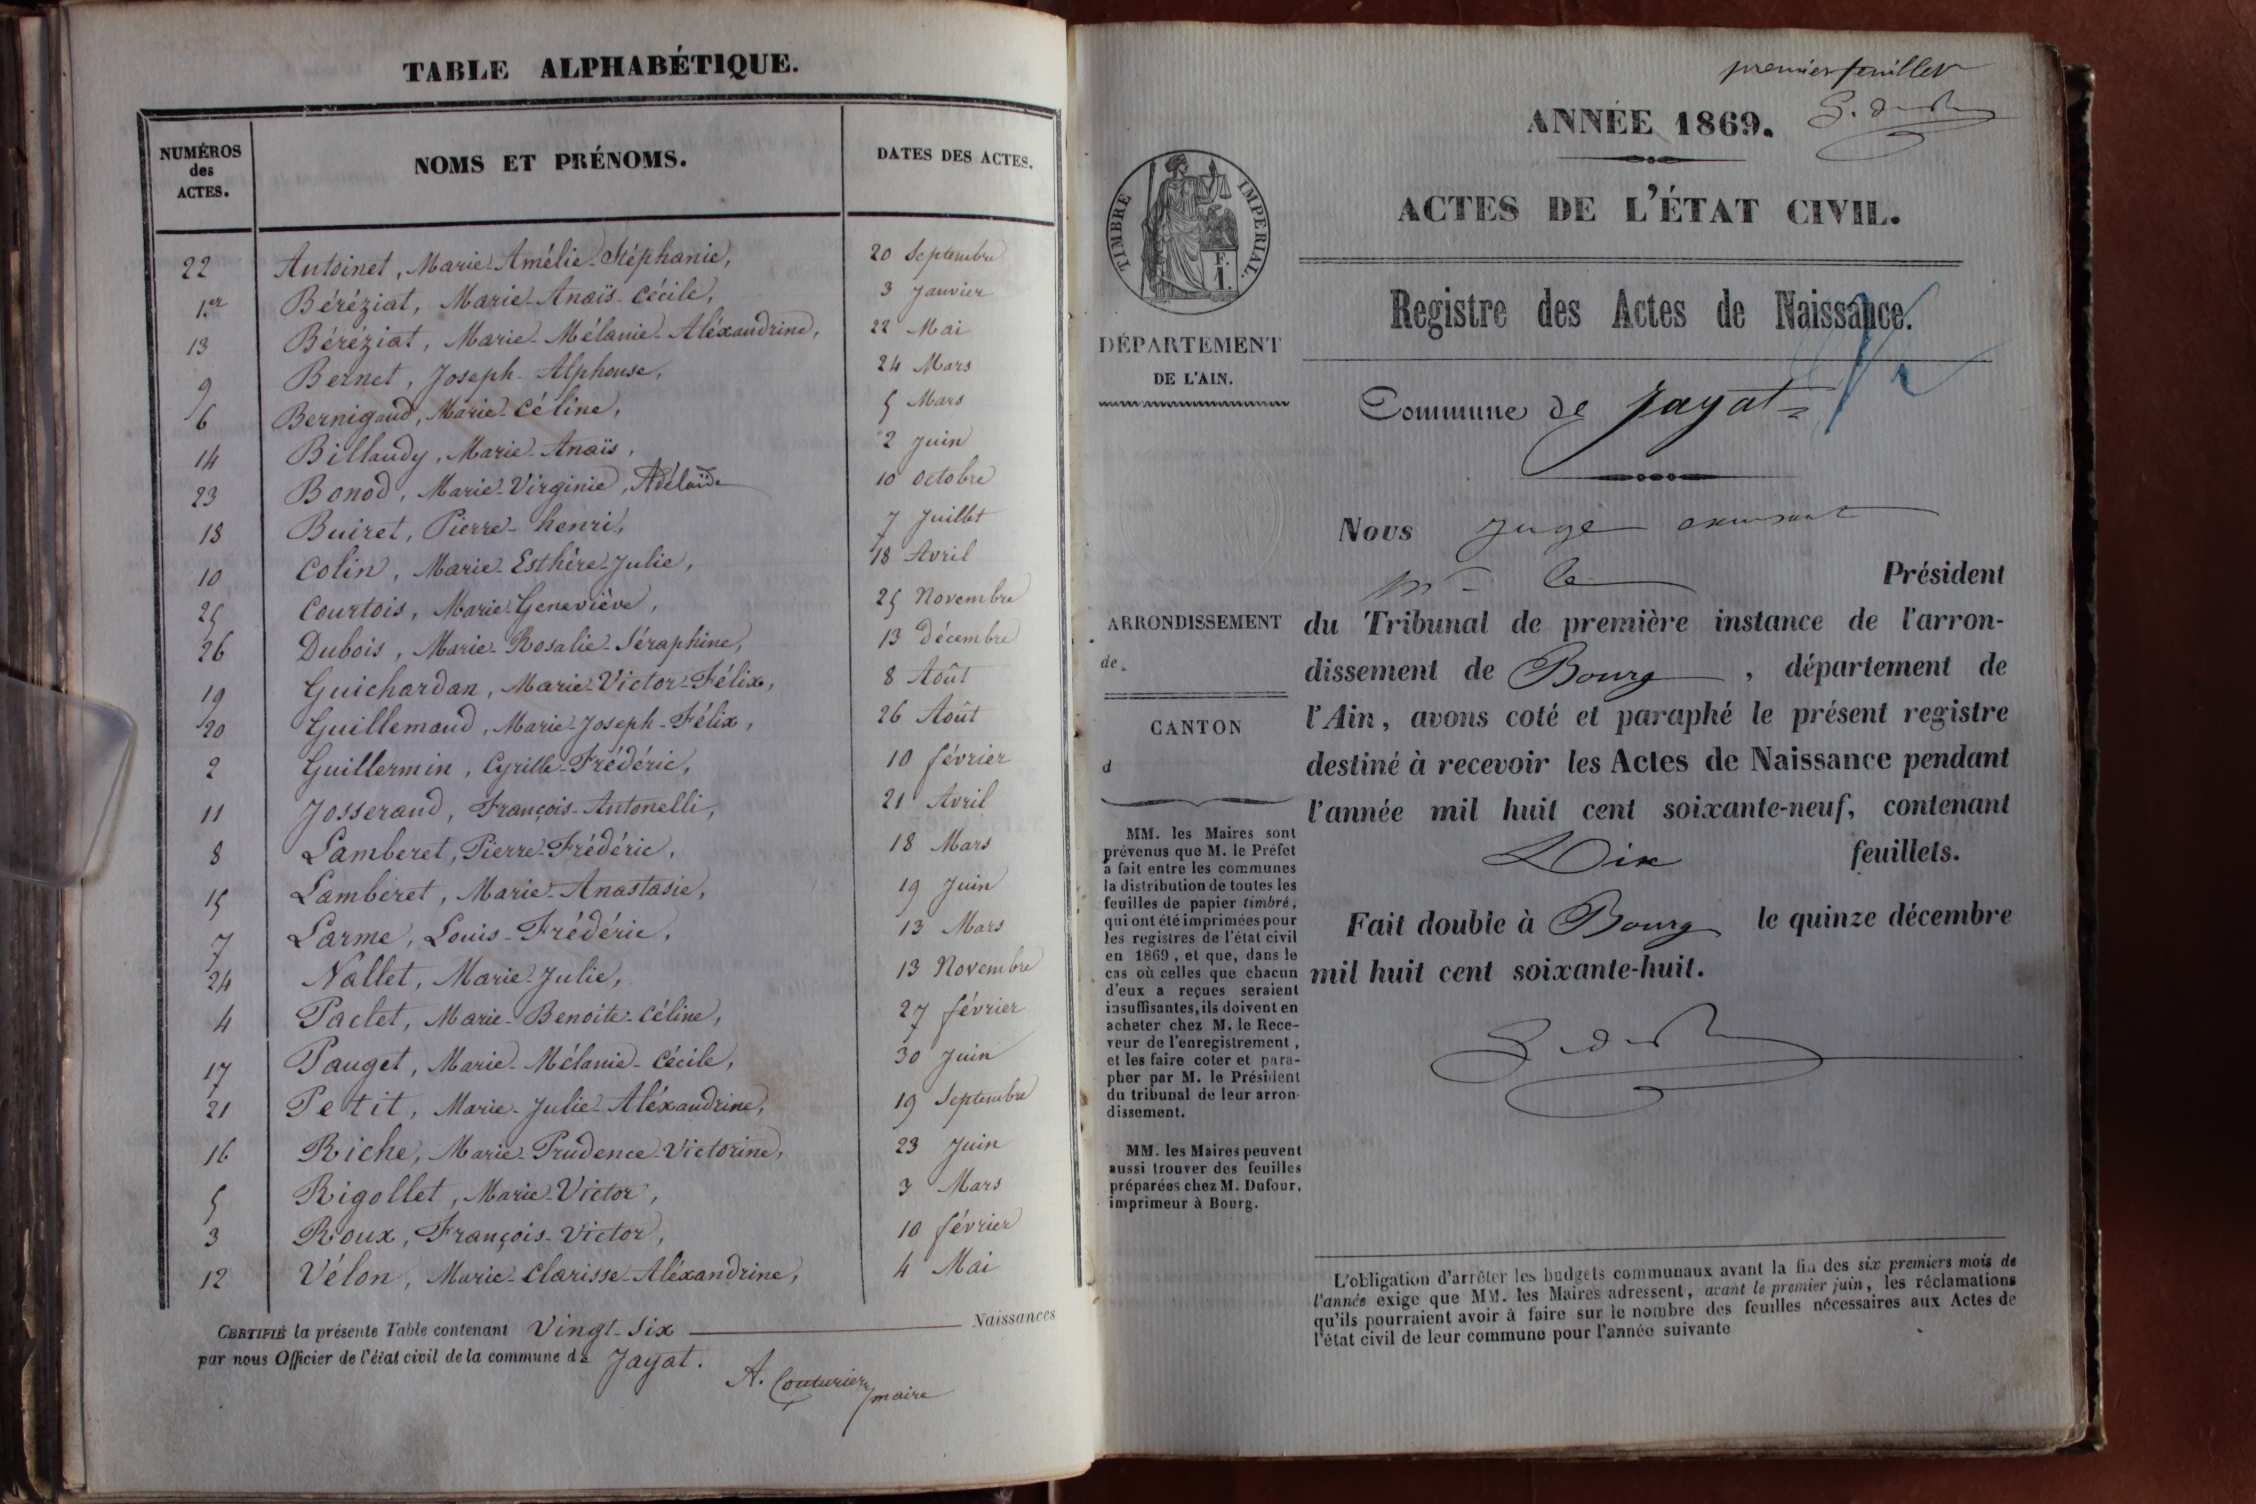 TABLE ALPHABÉTIQUE.
NUMÉROS
des
ACTES.
NOMS ET PRÉNOMS.
DATES DES ACTES.
22 Antoinet, Marie-Amélie-Stéphanie, 20 Septembre
1er Béréziat, Marie-Anaïs-Cécile, 3 Janvier
13 Béréziat, Marie-Mélanie-Aléxandrine, 22 Mai
9 Bernet, Joseph-Alphonse, 24 Mars
6 Bernigaud, Marie-Céline, 5 Mars
14 Billaudy, Marie-Anaïs, 2 Juin
23 Bonod, Marie-Virginie, Adélaïde 10 Octobre
18 Buiret, Pierre-henri, 7 Juillet
10 Colin, Marie-Esthère-Julie, 18 Avril
25 Courtois, Marie-Geneviève, 25 Novembre
26 Dubois, Marie-Rosalie-Séraphine, 13 Décembre
19 Guichardan, Marie-Victor-Félix, 8 Août
20 Guillemaud, Marie-Joseph-Félix, 26 Août
2 Guillermin, Cyrille-Frédéric, 10 février
11 Josserand, François-Antonelli, 21 Avril
8 Lamberet, Pierre-Frédéric, 18 Mars
15 Lambéret, Marie-Anastasie, 19 Juin
7 Larme, Louis-Frédéric, 13 Mars
24 Nallet, Marie-Julie, 13 Novembre
4 Paclet, Marie-Benoite-Céline, 27 février
17 Pauget, Marie-Mélanie-Cécile, 30 Juin
21 Petit, Marie-Julie-Aléxandrine, 19 Septembre
16 Riche, Marie-Prudence-Victorine, 23 Juin
5 Rigollet, Marie-Victor, 3 Mars
3 Roux, François-Victor, 10 février
12 Vélon, Marie-Clarisse-Aléxandrine, 4 Mai
CERTIFIÉ la présente Table contenant Vingt-Six Naissances
par nous Officier de l'état civil de la commune de Jayat.
A. Couturier, maire
premier feuillet
ANNÉE 1869.
ACTES DE L'ÉTAT CIVIL.
TIMBRE IMPERIAL.
F.
1.
Registre des Actes de Naissance.
DÉPARTEMENT
DE L'AIN.
Commune de Jayat
Nous Juge
Président
ARRONDISSEMENT
de
CANTON
d
du Tribunal de première instance de l'arron-
dissement de Bourg, département de
l'Ain, avons coté et paraphé le présent registre
destiné à recevoir les Actes de Naissance pendant
l'année mil huit cent soixante-neuf, contenant
Dix feuillets.
Fait double à Bourg le quinze décembre
mil huit cent soixante-huit.
MM. les Maires sont
prévenus que M. le Préfet
a fait entre les communes
la distribution de toutes les
feuilles de papier timbré,
qui ont été imprimées pour
les registres de l'état civil
en 1869, et que, dans le
cas où celles que chacun
d'eux a reçues seraient
insuffisantes, ils doivent en
acheter chez M. le Rece-
veur de l'enregistrement,
et les faire coter et para-
pher par M. le Président
du tribunal de leur arron-
dissement.
MM. les Maires peuvent
aussi trouver des feuilles
préparées chez M. Dufour,
imprimeur à Bourg.
L'obligation d'arrêter les budgets communaux avant la fin des six premiers mois de
l'année exige que MM. les Maires adressent, avant le premier juin, les réclamations
qu'ils pourraient avoir à faire sur le nombre des feuilles nécessaires aux Actes de
l'état civil de leur commune pour l'année suivante